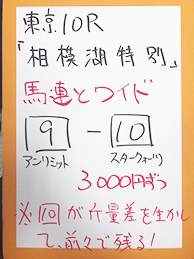 東京10R
「相模湖特別」
馬連とワイド
9 - 10
アンリミット スタークォーツ
3000円ずつ
※10が斤量差を生かし
て、前々で残る!